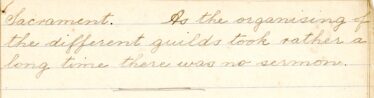 Sacrament. As the organising of
the different guilds took rather a
long time there was no sermon.